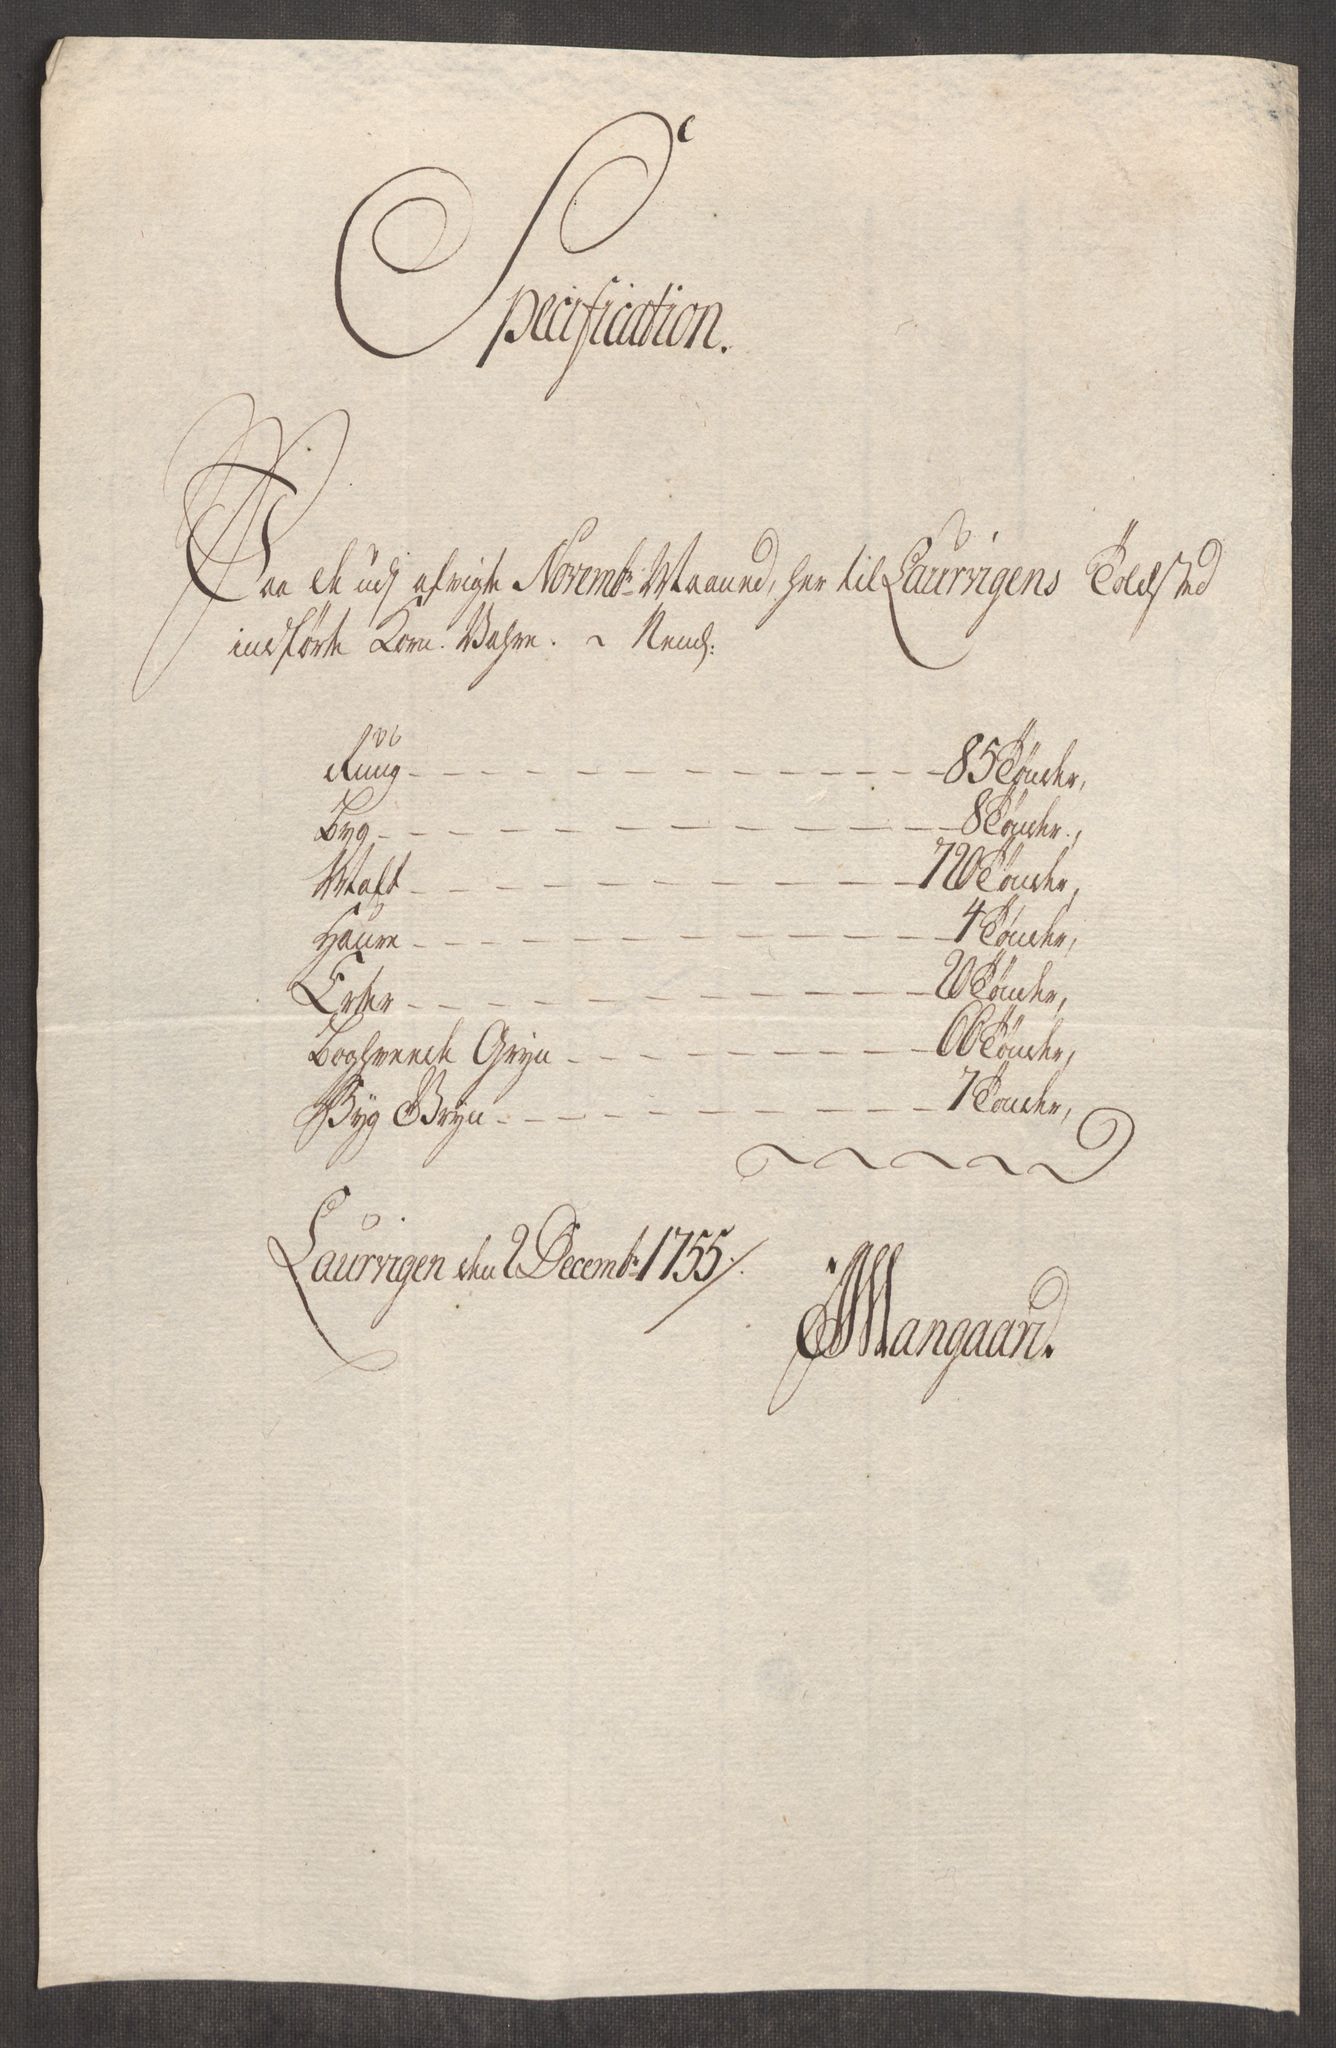 Specification.
Paa de udj afvigte Novembr: Maaned, her til Laurvigens Toldsted
indførte Korn-Vahre. ~ Neml:
Rúug - 85 Tønder,
Byg - 8 Tønder,
Malt - 720 Tønder,
Haúre - 4 Tønder,
Erter - 20 Tønder,
Boghveede Gryn - 66 Tønder,
Byg Gryn - 7 Tønder,
Laurvigen den 2 Decembr: 1755.
Mangaard.